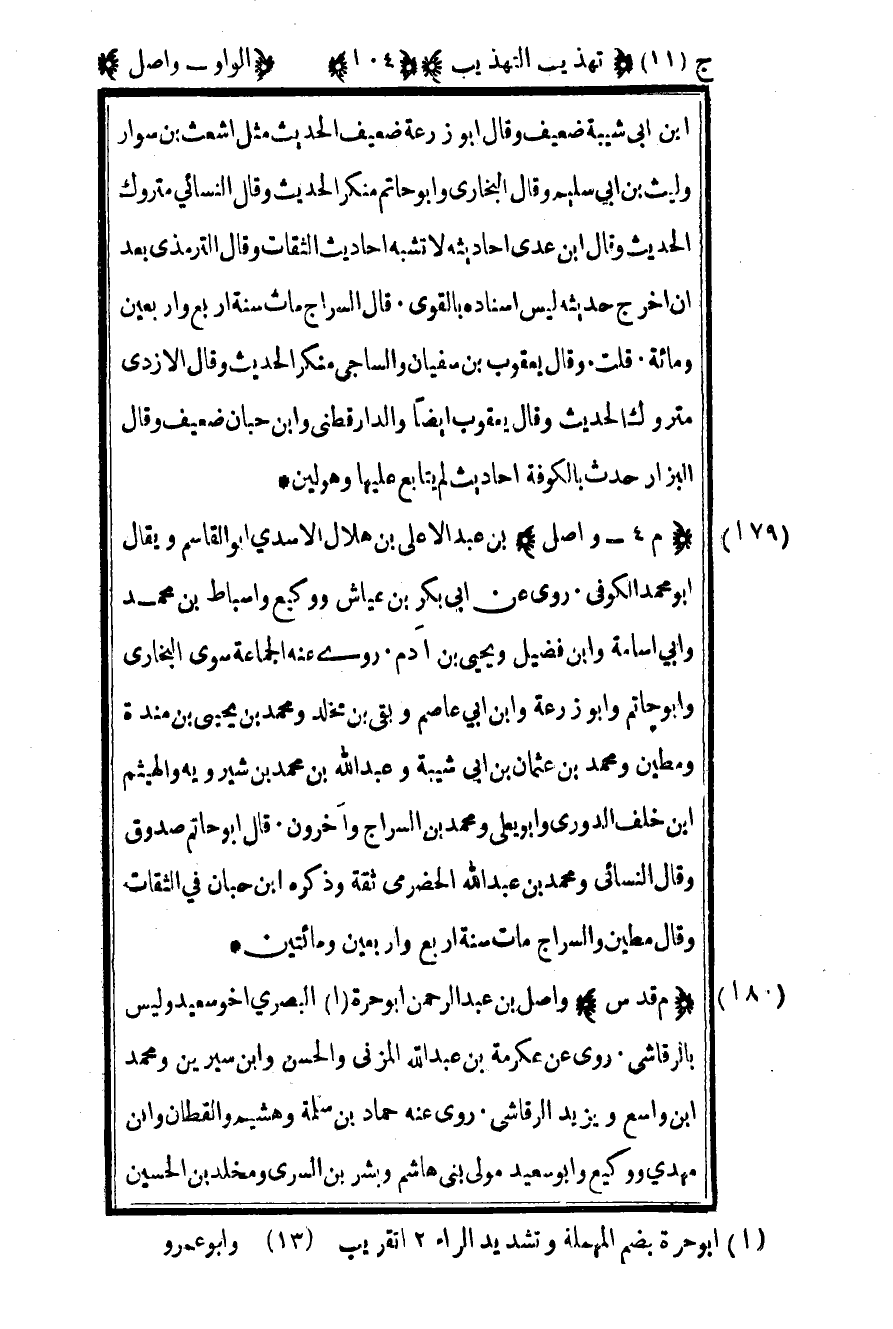 ج (١١) ﴿ تهذيب التهذيب ﴾ ﴿ ١٠٤ ﴾ ﴿ الواو ـ واصل ﴾
ابن ابى شيبة ضعيف وقال ابو زرعة ضعيف الحديث مثل اشعث بن سوار
وليث بن ابي سليم وقال البخارى وابو حاتم منكر الحديث وقال النسائي متروك
الحديث وقال ابن عدى احاديثه لا تشبه احاديث الثقات وقال الترمذى بعد
ان اخرج حديثه ليس اسناده بالقوى ٠ قال السراج مات سنة اربع واربعين
ومائة ٠ قلت ٠ وقال يعقوب بن سفيان والساجى منكر الحديث وقال الازدى
متروك الحديث وقال يعقوب ايضاً والدارقطنى وابن حبان ضعيف وقال
البزار حدث بالكوفة احاديث لم يتابع عليها وهولين *
(١٧٩) ﴿ م ٤ ـ واصل ﴾ بن عبد الاعلى بن هلال الاسدي ابو القاسم ويقال
ابو محمد الكوفى ٠ روى عن ابي بكر بن عياش ووكيع واسباط بن محمد
وابي اسامة وابن فضيل ويحيى بن آدم ٠ روى عنه الجماعة سوى البخارى
وابو حاتم وابو زرعة وابن ابي عاصم وبقى بن مخلد ومحمد بن يحيى بن مندة
ومطين ومحمد بن عثمان بن ابى شيبة وعبد الله بن محمد بن شيرويه والهيثم
ابن خلف الدورى وابو يعلى ومحمد بن السراج وآخرون ٠ قال ابو حاتم صدوق
وقال النسائى ومحمد بن عبد الله الحضرمى ثقة وذكره ابن حبان في الثقات
وقال مطين والسراج مات سنة اربع واربعين ومائتين *
(١٨٠) ﴿ م قد س ﴾ واصل بن عبد الرحمن ابو حرة (١) البصري اخو سعيد وليس
بالرقاشى ٠ روى عن عكرمة بن عبد الله المزنى والحسن وابن سيرين ومحمد
ابن واسع ويزيد الرقاشى ٠ روى عنه حماد بن سلمة وهشيم والقطان وابن
مهدي ووكيع وابو سعيد مولى بنى هاشم وبشر بن السرى ومخلد بن الحسين
(١) ابو حرة بضم المهملة وتشديد الراء ١٢ تقريب (١٣) وابو عمرو